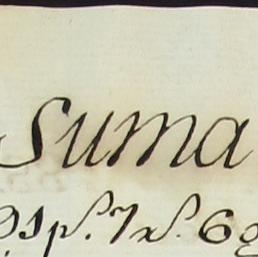 Suma
91 ps. 7 rs. 6 g